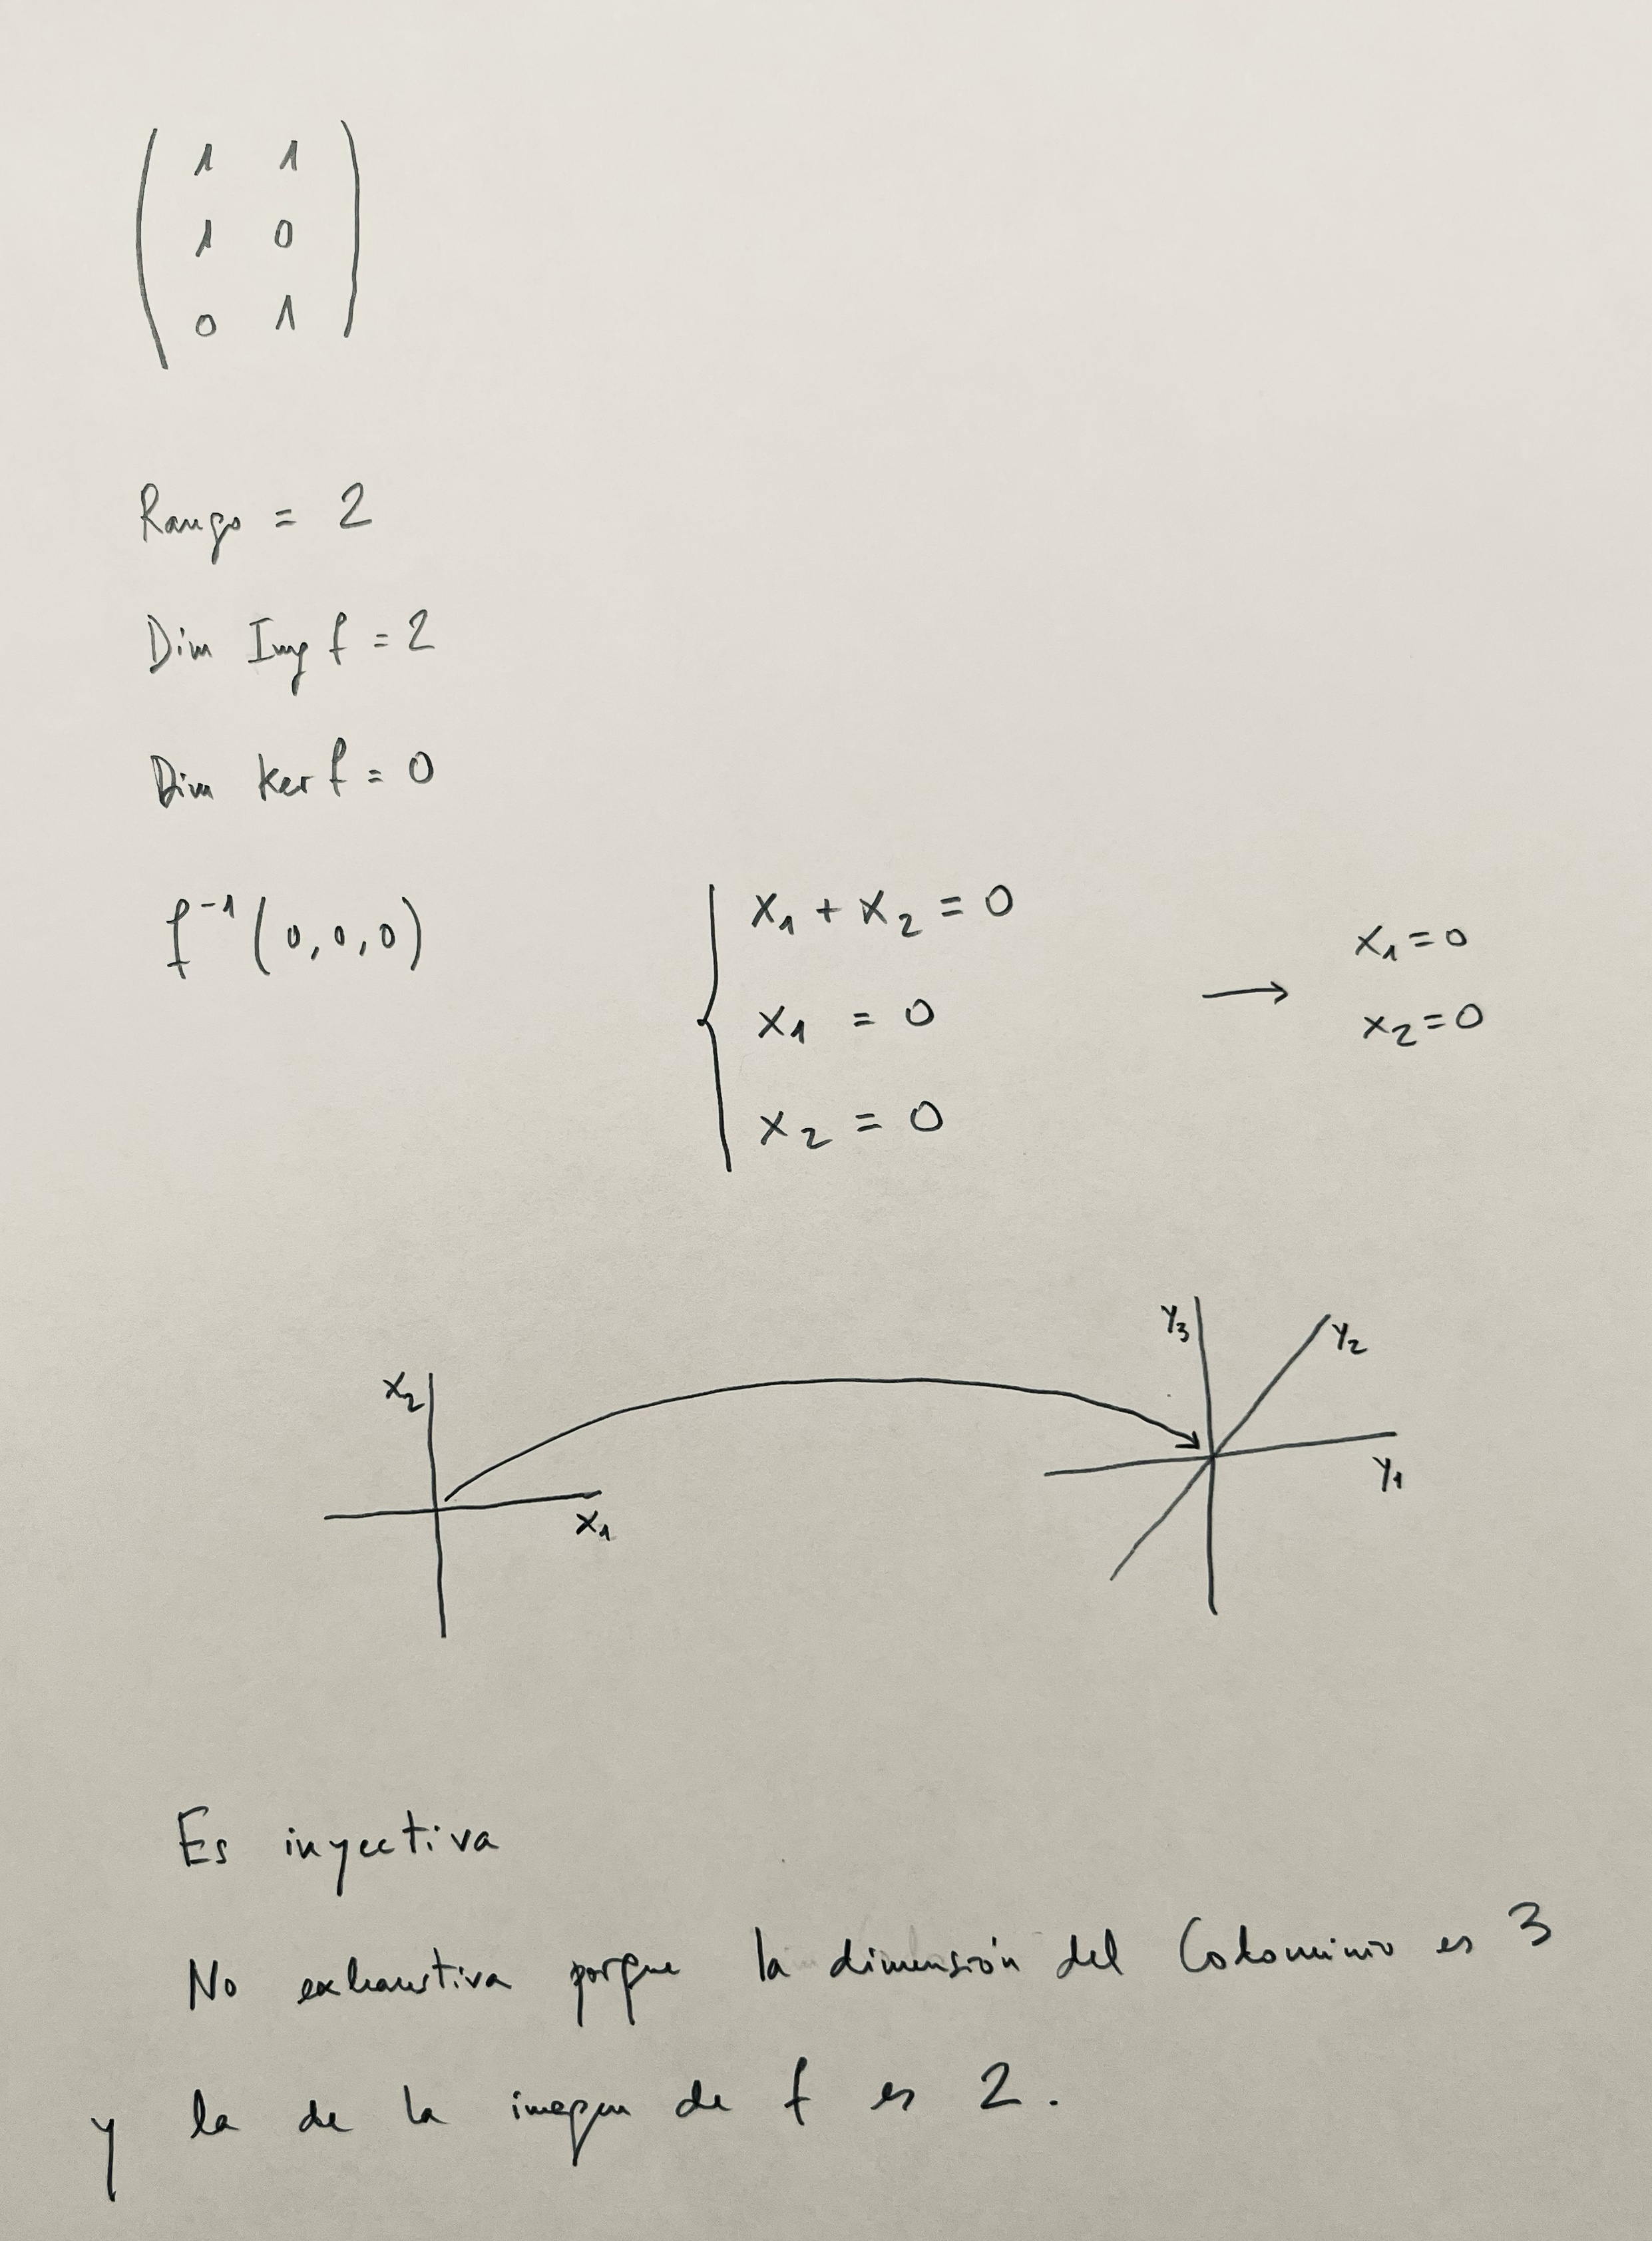 ( 1 1
1 0
0 1 )
Rango = 2
Dim Img f = 2
Dim Ker f = 0
f⁻¹(0,0,0)
{ x₁ + x₂ = 0
x₁ = 0
x₂ = 0
→ x₁ = 0
x₂ = 0
x₂
x₁
y₃
y₂
y₁
Es inyectiva
No exhaustiva porque la dimensión del Codominio es 3
y la de la imagen de f es 2.